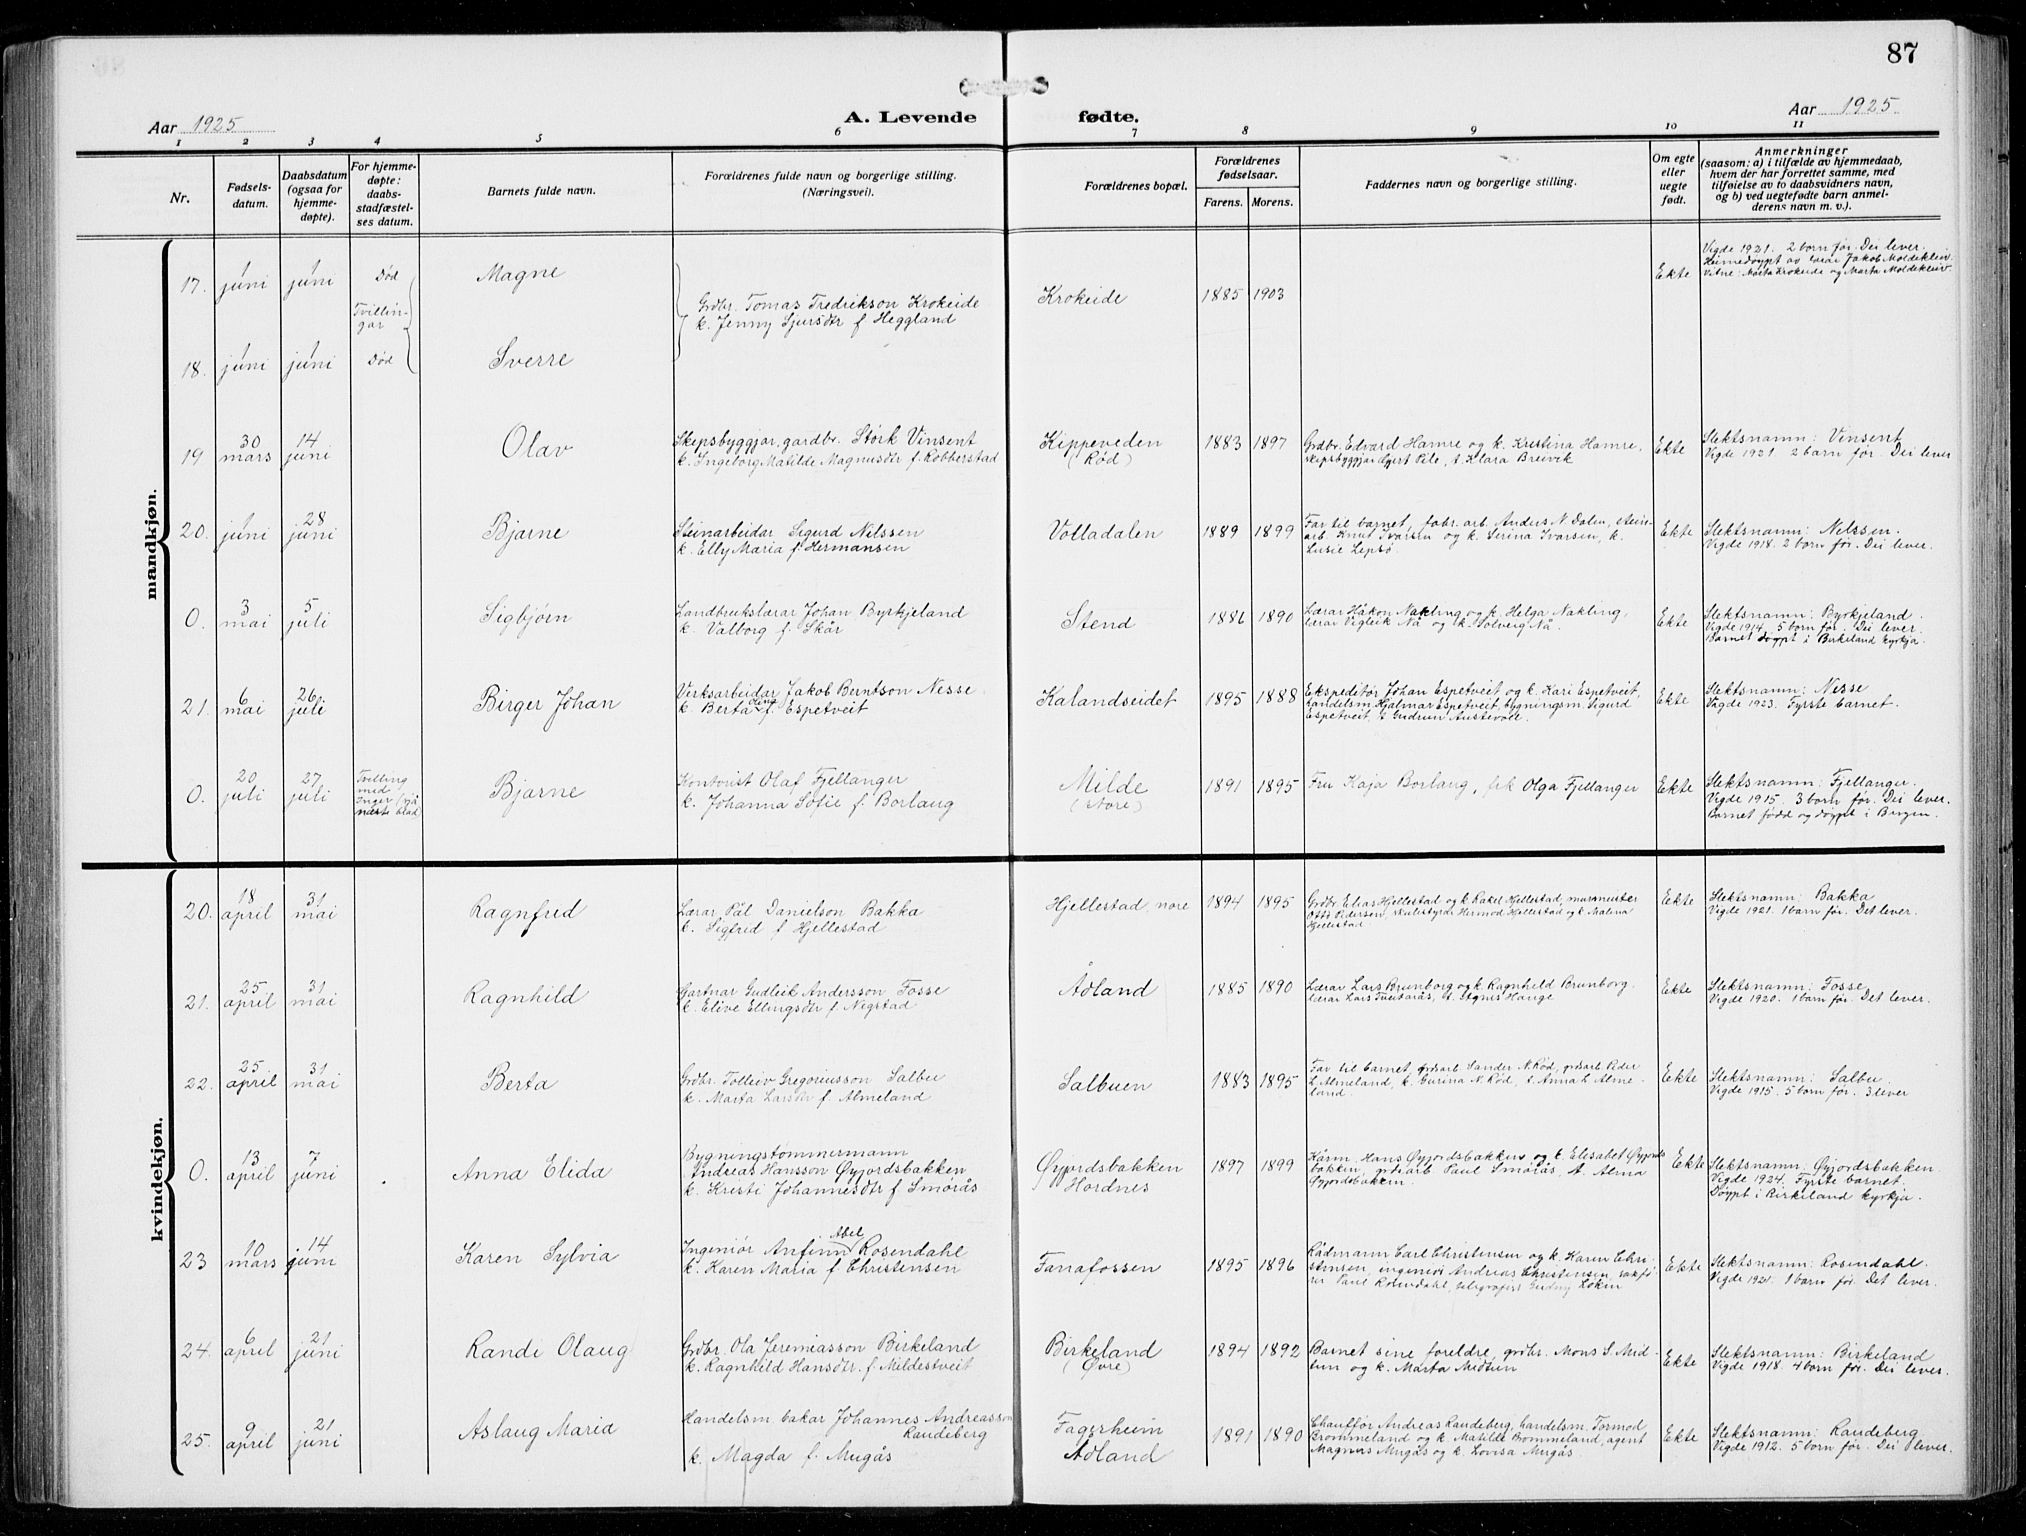 87
Aar 1925
A. Levende fødte.
Aar 1925
1 2 3 4 5 6 7 8 9 10 11
Nr.
Fødsels-
datum.
Daabsdatum
(ogsaa for
hjemme-
døpte).
For hjemme-
døpte:
daabs-
stadfæstel-
ses datum.
Barnets fulde navn.
Forældrenes fulde navn og borgerlige stilling.
(Næringsvei).
Forældrenes bopæl.
Forældrenes
fødselsaar.
Farens. Morens.
Faddernes navn og borgerlige stilling.
Om egte
eller
uegte
født.
Anmerkninger
(saasom: a) i tilfælde av hjemmedaab,
hvem der har forrettet samme, med
tilføielse av to daabsvidners navn,
og b) ved uegtefødte barn anmel-
derens navn m. v.).
mandkjøn.
17. 1 juni 1 juni Død Magne
Tvillin-
gar
Grdbr. Tomas Fredrikson Krokeide
k. Jenny Sjursdtr f. Heggland
Krokeide 1885 1903 Ekte
Vigde 1921. 2 born før. Dei lever.
Heimedøypt av lærar Jakob Moldekleiv
Vitne: Marta Krokeide og Marta Moldekleiv.
18. 1 juni 1 juni Død Sverre
19 30 mars 14 juni Olav
Skipsbyggjar, gardbr. Størk Vinsent
k. Ingeborg Matilde Magnusdtr f. Robberstad
Kippeveden
(Rød)
1883 1897
Grdbr. Edvard Hamre og k. Kristina Hamre,
skipsbyggjar Egert Pile, t. Klara Breivik
Ekte
Slektsnamn: Vinsent
Vigde 1921. 2 barn før. Dei lever
20. 1 juni 28 juni Bjarne
Steinarbeidar Sigurd Nilssen
k. Elly Maria f. Hermansen
Volladalen 1889 1899
Far til barnet, fabr. arb. Anders N. Dalen, stein-
arb. Knut Ivarsen og k. Serina Ivarsen, k.
Lusie Lepsø.
Ekte
Slektsnamn: Nilssen.
Vigde 1918. 2 born før. Dei lever.
0. 3 mai 5 juli Sigbjørn
Landbrukslærar Johan Byrkjeland
k. Valborg f. Skår
Stend 1886 1890
Lærar Håkon Nakling og k. Helga Nakling,
lærar Vigleik Nå og k. Solveig Nå.
Ekte
Slektsnamn: Byrkjeland.
Vigde 1914. 5 born før. Dei lever.
Barnet døypt i Birkeland kyrkja.
21. 6 mai 26 juli Birger Johan
Verksarbeidar Jakob Berntson Nesse.
k. Berta Olina f. Espetveit
Kalandseidet 1895 1888
Ekspeditør Johan Espetveit og k. Kari Espetveit,
handelsm. Hjalmar Espetveit, bygningsm. Sigurd
Espetveit, t. Gudrun Austevoll.
Ekte
Slektsnamn: Nesse
Vigde 1923. Fyrste barnet.
0. 20 juli 27 juli
Tvilling
med
Inger (sjå
næste blad)
Bjarne
Kontorist Olaf Fjellanger
k. Johanna Sofie f. Borlaug
Milde
(store)
1891 1895
Fru Kaja Borlaug, frk Olga Fjellanger
Ekte
Slektsnamn: Fjellanger.
Vigde 1915. 3 born før. Dei lever.
Barnet fødd og døypt i Bergen.
kvindekjøn.
20. 18 april 31 mai Ragnfrid
Lærar Pål Danielson Bakka
k. Sigfrid f. Hjellestad
Hjellestad, nore 1894 1895
Grdbr. Elias Hjellestad og k. Rakel Hjellestad, murmeister
Otto Pedersen, skulestyrar Hermod Hjellestad og k. Malina
Hjellestad
Ekte
Slektsnamn: Bakka
Vigde 1921. 1 barn før. Det lever.
21. 25 april 31 mai Ragnhild
Gartnar Gudleik Andersson Fosse
k. Elive Ellingsdtr f. Nigstad
Ådland 1885 1890
Lærar Lars Brunborg og k. Ragnhild Brunborg.
lærar Lars , t. Agnes Hauge
Ekte
Slektsnamn: Fosse
Vigde 1920. 1 barn før. Det lever.
22. 25. april 31 mai Berta
Grdbr. Tolleiv Gregoriusson Salbu
k. Marta Larsdtr f. Almeland
Salbuen 1883 1895
Far til barnet, grdsarb. Sander N. Rød, grdsarb. Peder
L. Almeland, k. Gurina N. Rød, t. Anna L. Alme-
land.
Ekte
Slektsnamn: Salbu.
Vigde 1915. 5 born før. 3 lever
0. 13 april 7 juni Anna Elida
Bygningstømmermann
Andreas Hansson Øyjordsbakken
k. Kristi Johannesdtr f. Smørås
Øyjordsbakken
Hordnes
1897 1899
Kårm. Hans Øyjordsbakken og k. Elisabet Øyjords
bakken, grdsarb Paul Smørås, t. Alma
Øyjordsbakken.
Ekte
Slektsnamn: Øyjordsbakken.
Vigde 1924. Fyrste barnet.
Døypt i Birkeland kyrkja.
23 10 mars 14 juni Karen Sylvia
Ingeniør Anfinn Abel Rosendahl
k. Karen Maria f. Christensen
Fanafossen 1895 1896
Rådmann Carl Christensen og k. Karen Chri-
stensen, ingeniør Andreas Christensen, sakfø-
rer Paul Rosendahl, telegrafist Gudny Løken
Ekte
Slektsnamn: Rosendahl.
Vigde 1921. 1 barn før. Det lever.
24. 6 april 21 juni Randi Olaug
Grdbr. Ola Jeremiasson Birkeland
k. Ragnhild Hansdtr. f. Mildestveit
Birkeland
(Øvre)
1894 1892
Barnet sine foreldre, grdbr. Mons S. Mid-
tun og k. Marta Midtun
Ekte
Slektsnamn: Birkeland
Vigde 1918. 4 born før. Dei lever.
25. 9 april 21 juni Aslaug Maria
Handelsm bakar Johannes Andreasson
Raudeberg
k. Magda f. Mugås
Fagerheim
Ådland
1891 1890
Chauffør Andreas Raudeberg, handelsm. Tormod
Brommeland og k. Matilde Brommeland, agent
Magnus Mugås og k. Lovisa Mugås.
Ekte
Slektsnamn: Raudeberg
Vigde 1912. 5 born før. Dei lever.